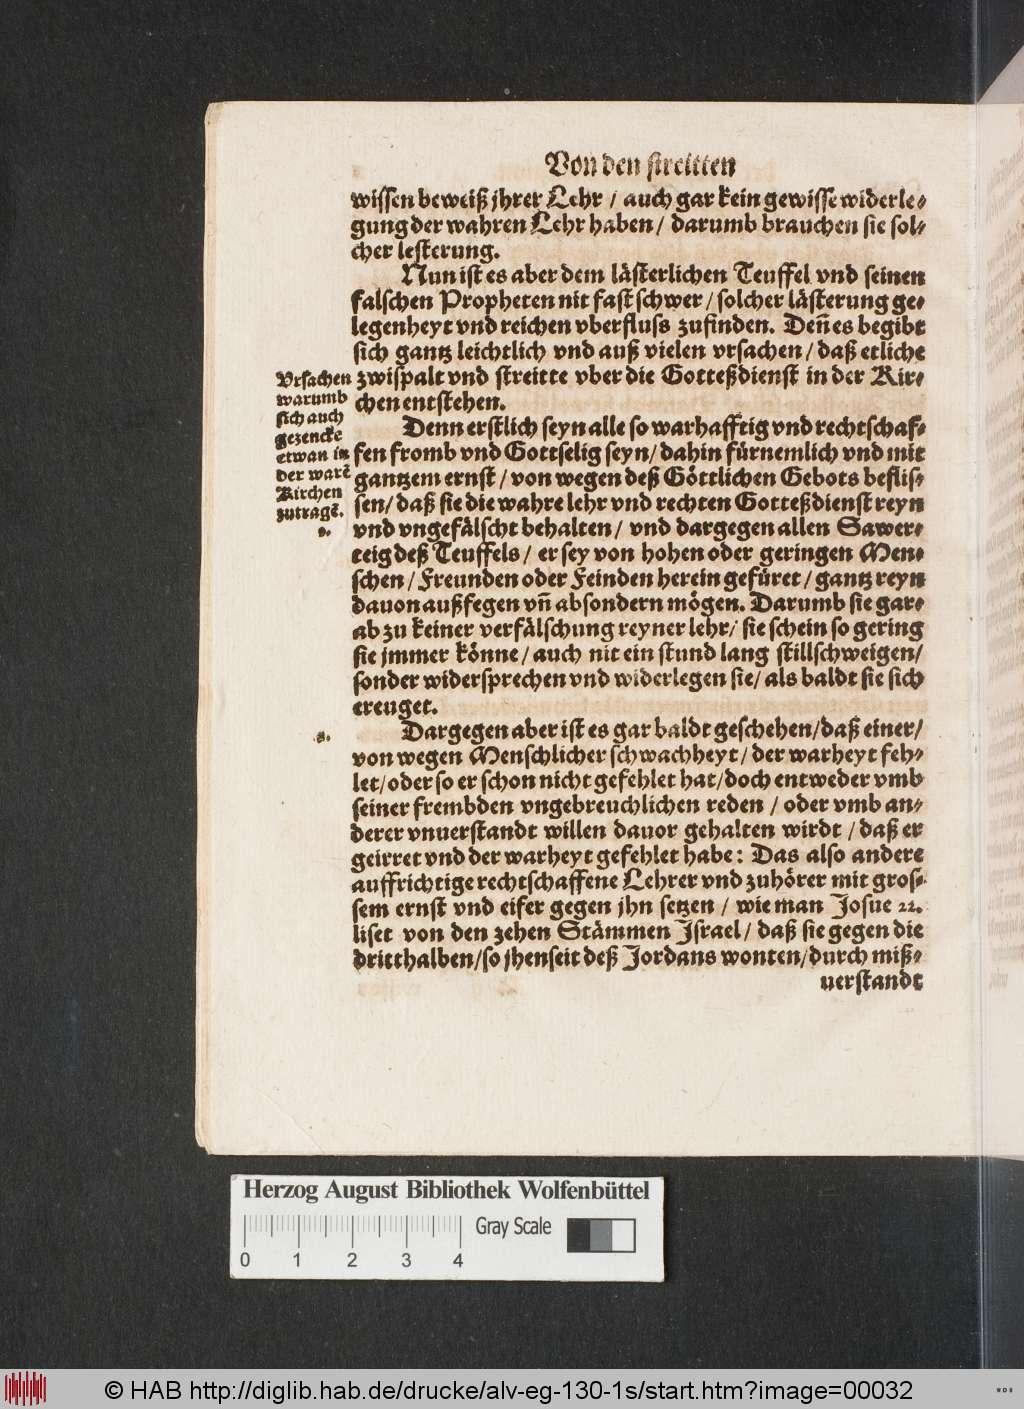 Von den streitten
wissen beweiß jhrer Lehr / auch gar kein gewisse widerle-
gung der wahren Lehr haben / darumb brauchen sie sol-
cher lesterung.
Nun ist es aber dem lästerlichen Teuffel vnd seinen
falschen Propheten nit fast schwer / solcher lästerung ge-
legenheyt vnd reichen vberfluss zufinden. Deñ es begibt
sich gantz leichtlich vnd auß vielen vrsachen / daß etliche
zwispalt vnd streitte vber die Gotteßdienst in der Kir-
chen entstehen.
Vrsachen
warumb
sich auch
gezencke
etwan in
der warē
Kirchen
zutragē.
1.
Denn erstlich seyn alle so warhafftig vnd rechtschaf-
fen fromb vnd Gottselig seyn / dahin fürnemlich vnd mit
gantzem ernst / von wegen deß Göttlichen Gebots beflis-
sen / daß sie die wahre lehr vnd rechten Gotteßdienst reyn
vnd vngefälscht behalten / vnd dargegen allen Sawer-
teig deß Teuffels / er sey von hohen oder geringen Men-
schen / Freunden oder Feinden herein gefüret / gantz reyn
dauon außfegen vñ absondern mögen. Darumb sie gar-
ab zu keiner verfälschung reyner lehr / sie schein so gering
sie jmmer könne / auch nit ein stund lang stillschweigen /
sonder widersprechen vnd widerlegen sie / als baldt sie sich
ereuget.
2.
Dargegen aber ist es gar baldt geschehen / daß einer /
von wegen Menschlicher schwachheyt / der warheyt feh-
let / oder so er schon nicht gefehlet hat / doch entweder vmb
seiner frembden vngebreuchlichen reden / oder vmb an-
derer vnuerstandt willen dauor gehalten wirdt / daß er
geirret vnd der warheyt gefehlet habe: Das also andere
auffrichtige rechtschaffene Lehrer vnd zuhörer mit gros-
sem ernst vnd eifer gegen jhn setzen / wie man Josue 22.
liset von den zehen Stämmen Israel / daß sie gegen die
dritthalben / so jhenseit deß Jordans wonten / durch miß-
uerstandt
Herzog August Bibliothek Wolfenbüttel
Gray Scale
0 1 2 3 4
© HAB http://diglib.hab.de/drucke/alv-eg-130-1s/start.htm?image=00032